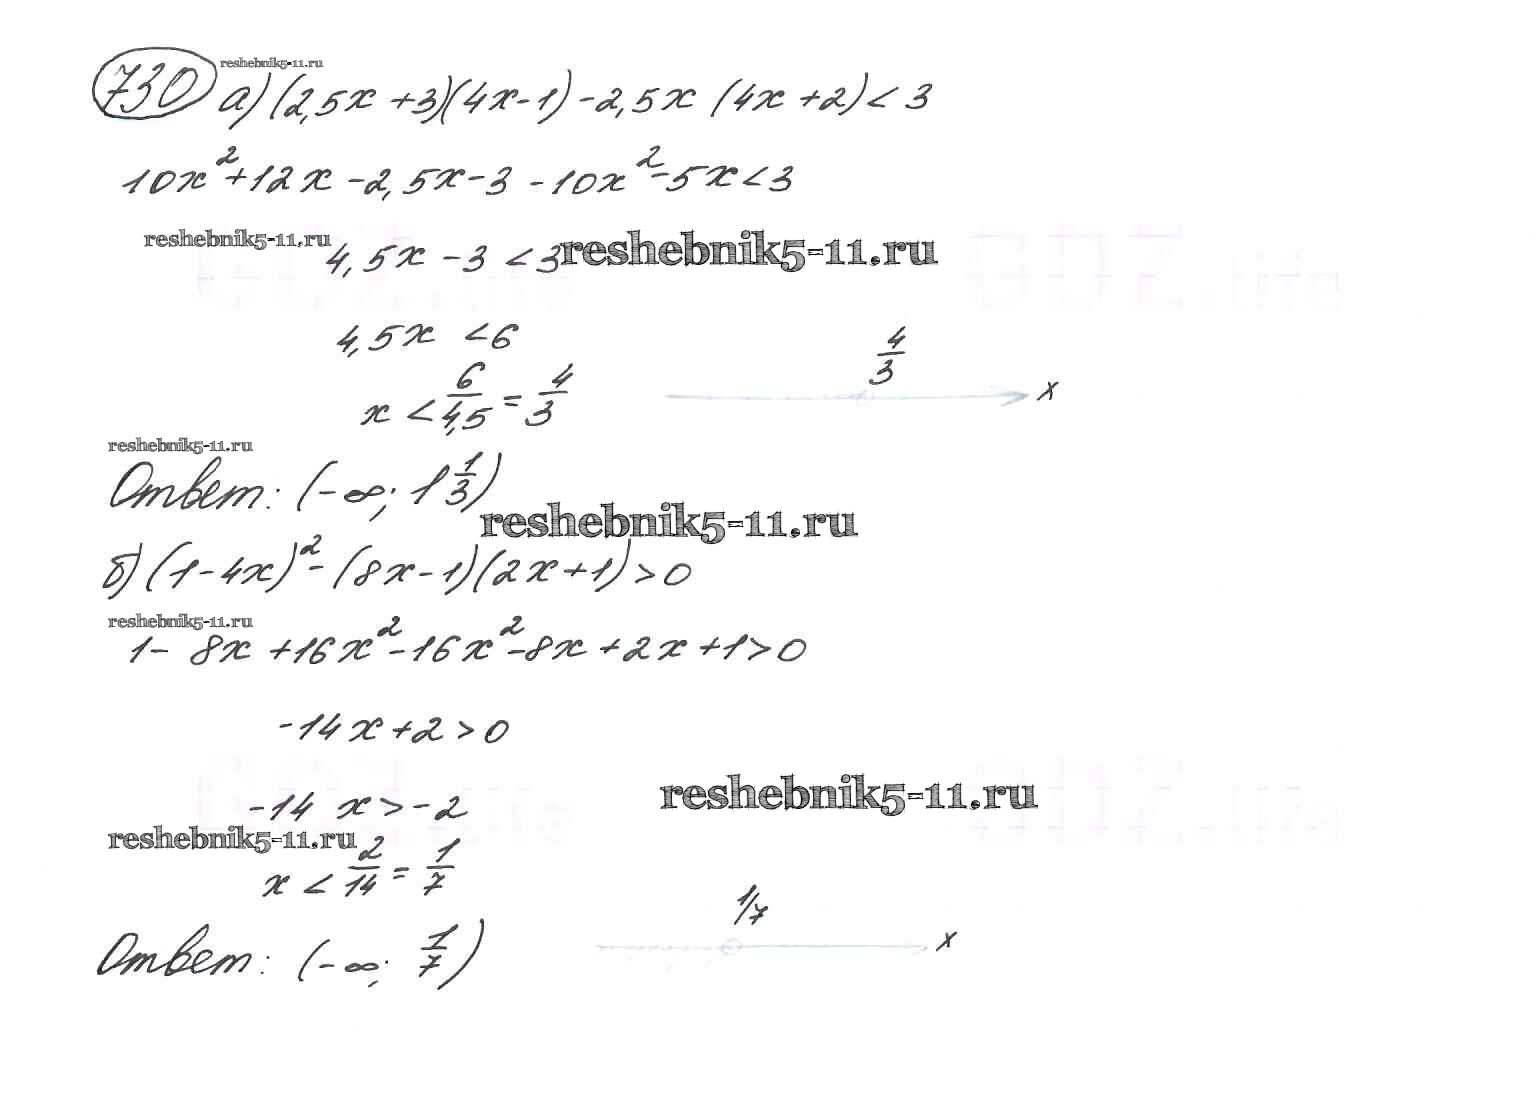 reshebnik5-11.ru
730 а) (2,5x + 3)(4x - 1) - 2,5x (4x + 2) < 3
10x² + 12x - 2,5x - 3 - 10x² - 5x < 3
reshebnik5-11.ru
4,5x - 3 < 3
reshebnik5-11.ru
GDZ.life
GDZ.life
4,5x < 6
x < 6/4,5 = 4/3
4/3
x
reshebnik5-11.ru
Ответ: (-∞; 1 1/3)
reshebnik5-11.ru
б) (1 - 4x)² - (8x - 1)(2x + 1) > 0
reshebnik5-11.ru
1 - 8x + 16x² - 16x² - 8x + 2x + 1 > 0
-14x + 2 > 0
GDZ.life
GDZ.life
-14x > -2
reshebnik5-11.ru
reshebnik5-11.ru
x < 2/14 = 1/7
1/7
x
Ответ: (-∞; 1/7)